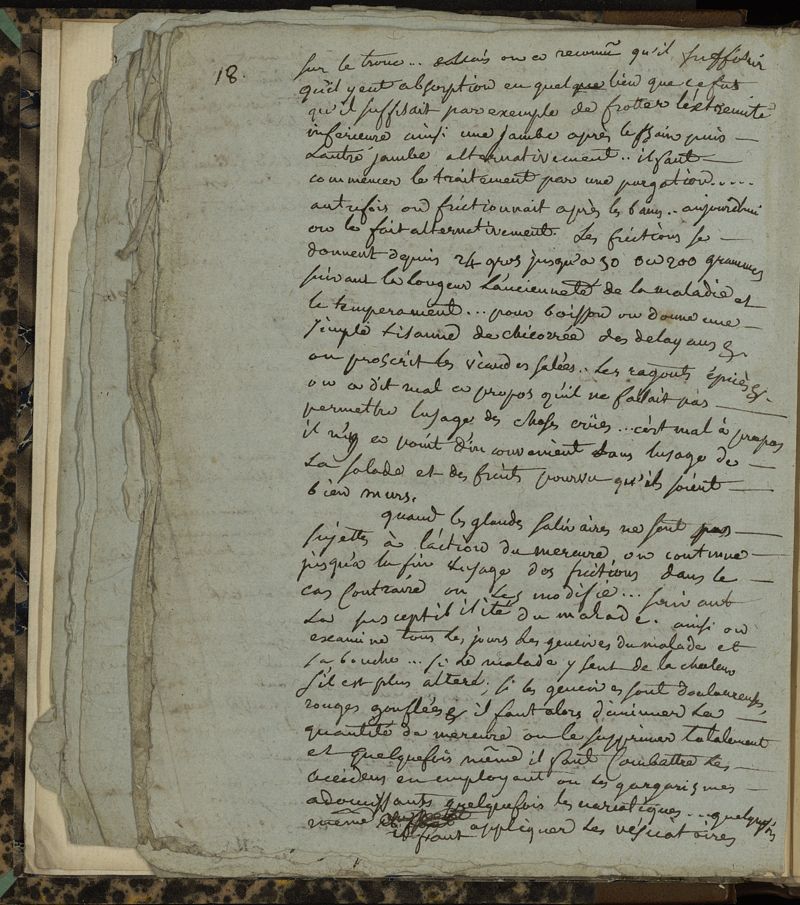 18.
sur le tronc... mais on a reconnu qu'il suffisoit
qu'il y eut absorption en quelque lieu que ce fut
qu'il suffisait par exemple de frotter l'extremité
inferieure ainsi une jambe après le bain puis —
l'autre jambe alternativement.. il faut —
commencer le traitement par une purgation.....
autrefois on frictionnait après les bains.. aujourdhui
on le fait alternativement. Les frictions se —
donnent depuis 24 gros jusqu'a 50 ou 200 grammes
suivant la longeur l'ancienneté de la maladie et
le temperament... pour boisson on donne une —
simple tisanne de chicorrée des delayans &
on proscrit les viandes salées.. Les ragouts épicés &.
on a dit mal a propos qu'il ne fallait pas —
permettre lusage des choses crües... c'est mal à propos
il n'y a point d'inconvenient dans lusage de —
la salade et des fruits pourvu qu'ils soient —
bien murs.
quand les glandes salivaires ne sont pas —
sujettes à l'action du mercure on continue —
jusqu'a la fin l'usage des frictions dans le —
cas contraire on les modifie... suivant
la susceptibilité du malade. ainsi on
examine tous les jours les gencives du malade et
sa bouche... si le malade y sent de la chaleur
s'il est plus alteré; si les gencives sont douloureuses,
rouges gonflées & il faut alors diminuer la —
quantité de mercure ou le supprimer totalement
et quelquefois même il faut combattre les —
accidens en employant ou les gargarismes —
adoucissants quelquefois les muriatiques... quelquefois
même il faut appliquer les vésicatoires